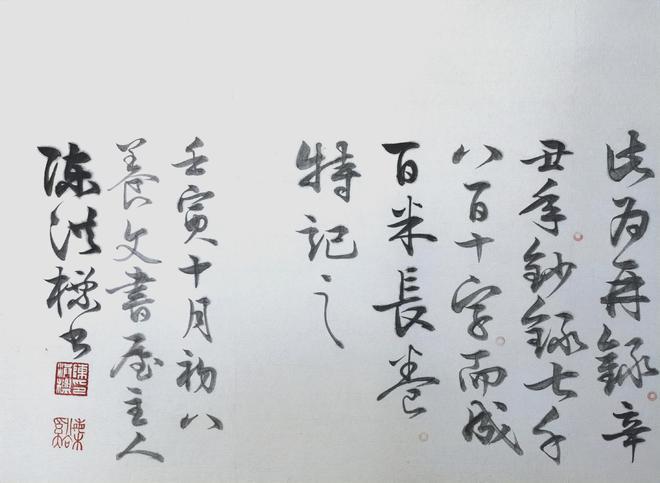 此为再錄辛
丑年鈔錄七千
八百十字而成
百米長卷
特記之
壬寅十月初八
養文書屋主人
陈洪標书